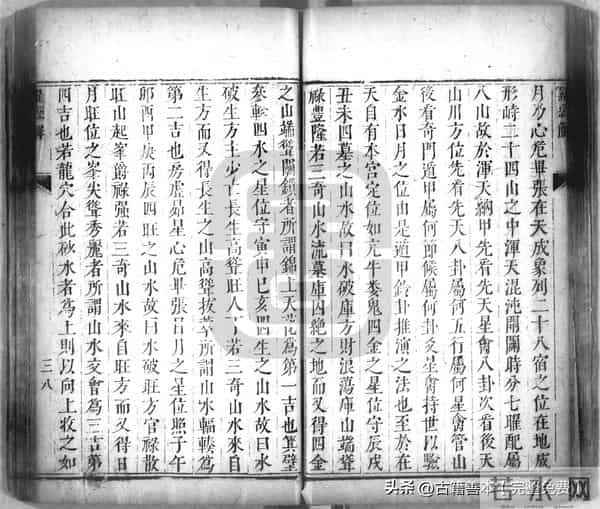 月乃心危畢張在天成象列二十八宿之位在地成
形峙二十四山之中渾天混沌開闢時分七曜配屬
八山故於渾天納甲先看先天星會八卦次看後天
山川方位先看先天八卦屬何五行屬何星會管山
後看奇門遁甲屬何節候屬何卦爻星會持世以驗
金水日月之位由是遁甲飛卦推演之法也至於在
天自有本宮定位如亢牛婁鬼四金之星位守辰戌
丑未四墓之山水故曰水破庫方財浪蕩庫山端聳
祿豐隆若三奇山水流墓庫囚絕之地而又得四金
之山端聳關鎖者所謂錦上天花為第一吉也箕壁
參軫四水之星位守寅甲巳亥四生之山水故曰水
破生方主少亡長生高聳旺人丁若三奇山水來自
生方而又得長生之山高聳拔萃所謂山水輻輳為
第二吉也房虛昴星心危畢張日月之星位照子午
卯酉甲庚丙辰四旺之山水故曰水破旺方官祿散
旺山起峯爵祿强若三奇山水來自旺方而又得日
月旺位之峯尖聳秀麗者所謂山水交會為三吉第
四吉也若龍穴合此砂水者為上則以向上收之如
三八
头条 @古籍善本